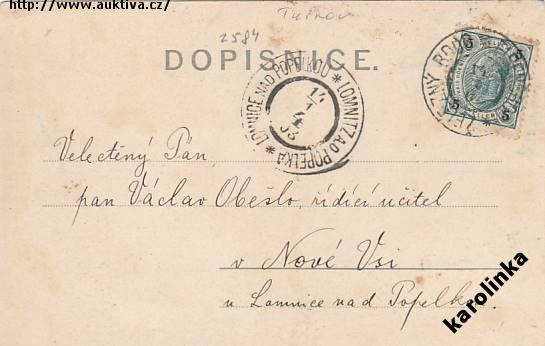 http://www.auktiva.cz/
2584
Turnov
DOPISNICE.
LOMNICE NAD POPELKOU * LOMNITZ A.D. POPELKA *
14
1
03
ŽELEZNÝ BROD
5 5
Velectěný Pán,
pan Václav Obešlo, řídící učitel
v Nové Vsi
u Lomnice nad Popelkou
karolinka